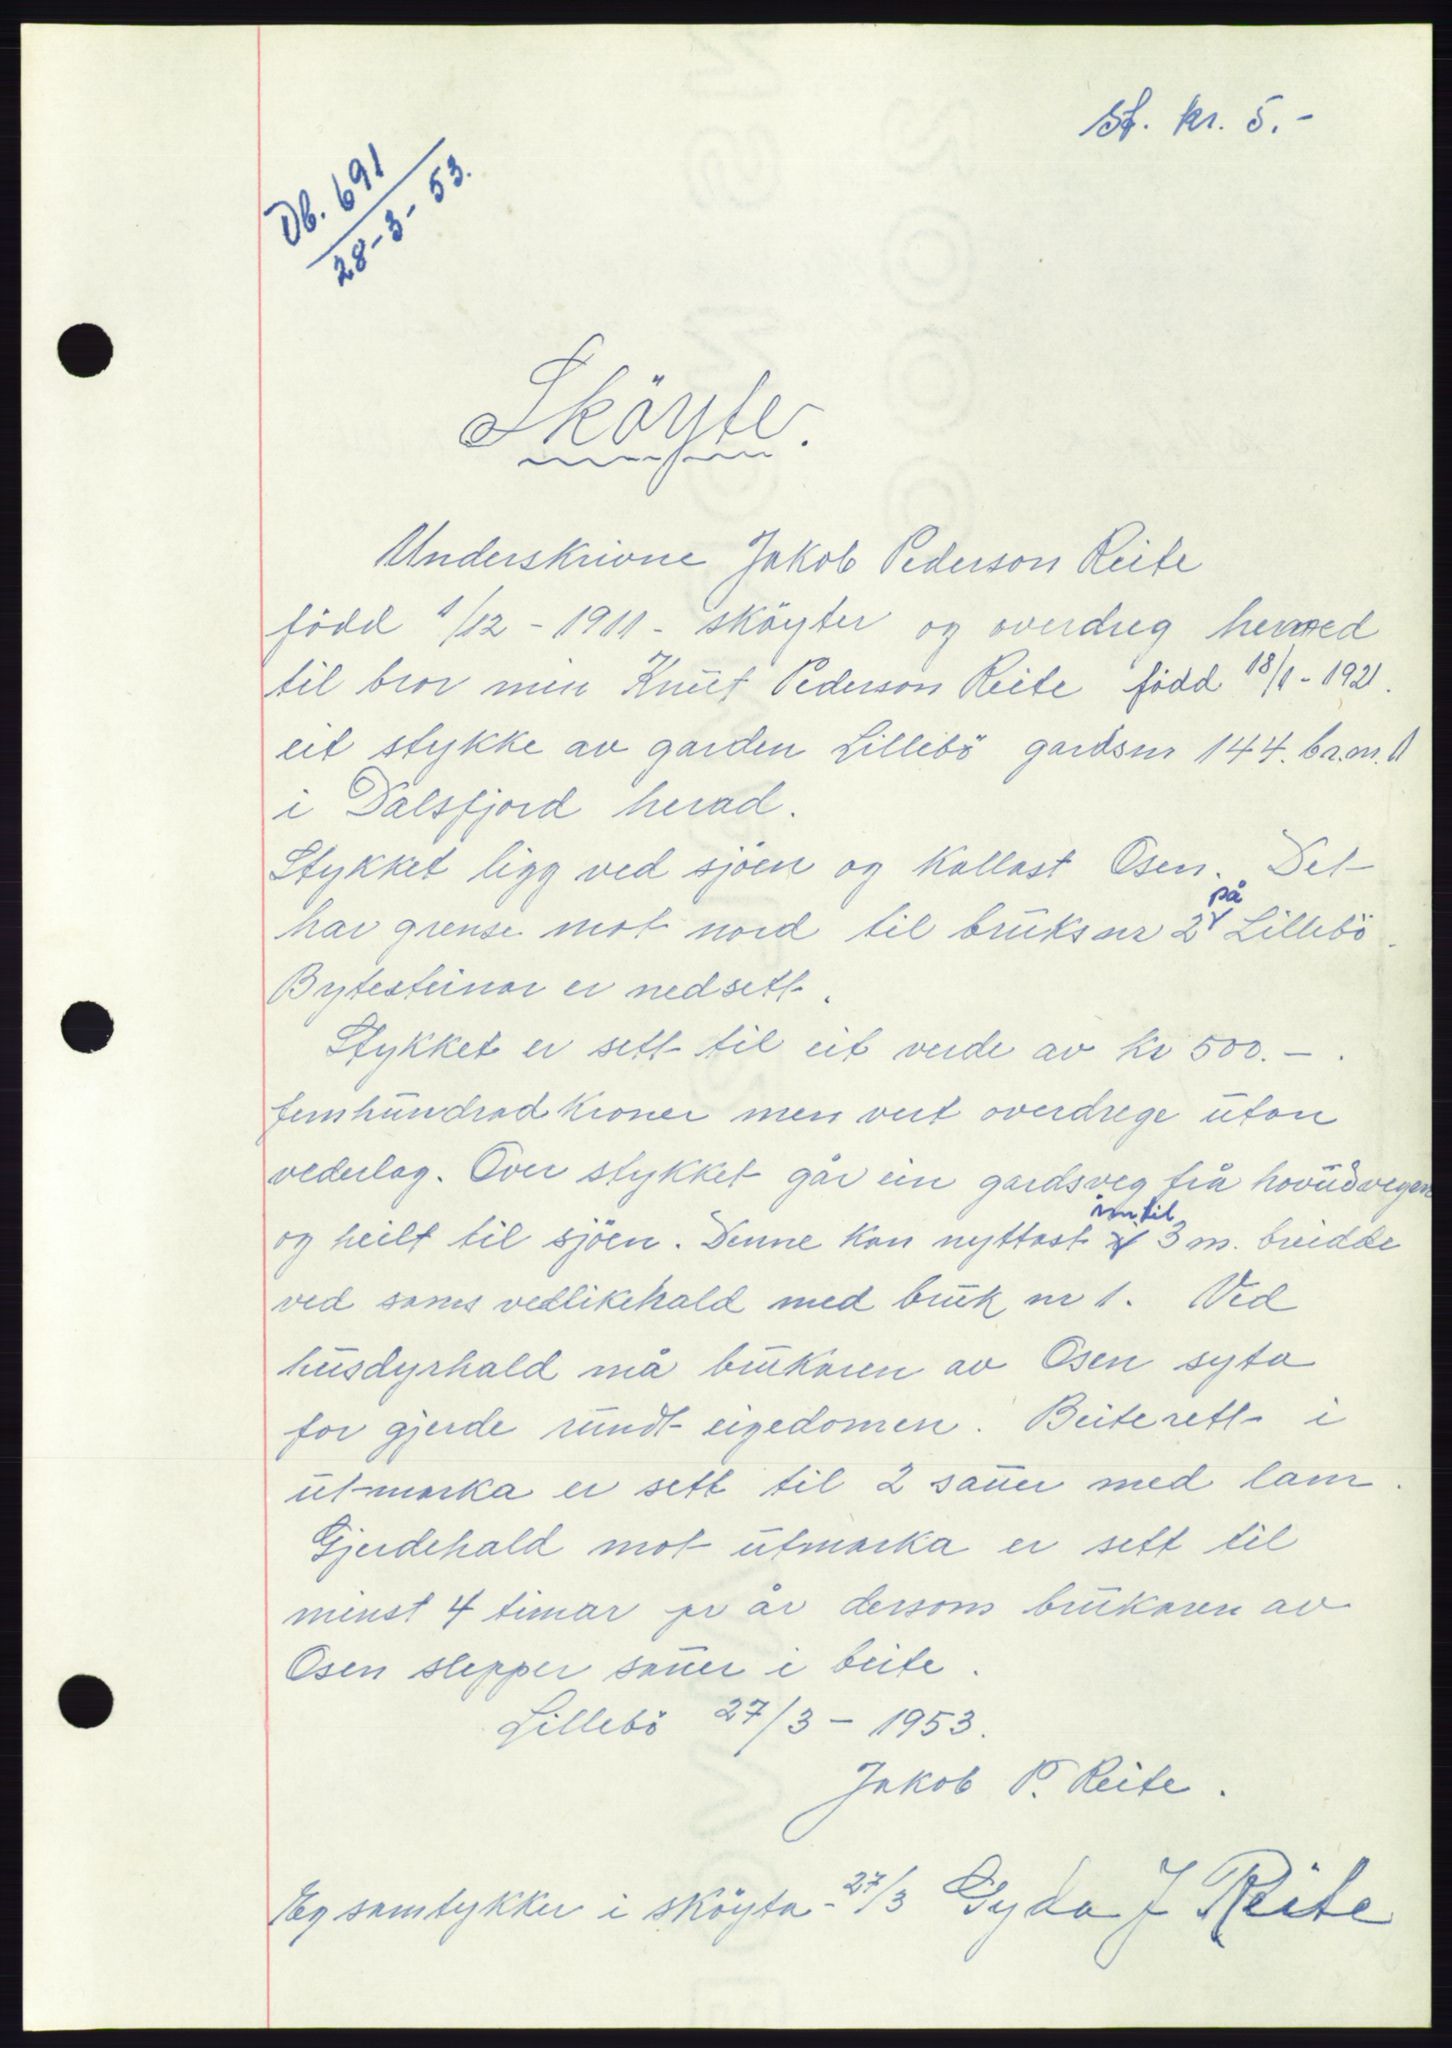 St. kr. 5.-
Db. 691
28-3-53.
Sköyte.
Underskrivne Jakob Pederson Reite
född 1/12 - 1911 - sköyter og overdreg hermed
til bror min Knut Pederson Reite född 18/1 - 1921.
eit stykke av garden Lillebö gardsnr 144. br.nr. 1
i Dalsfjord herad.
Stykket ligg ved sjöen og kallast Osen. Det
har grense mot nord til bruksnr 2 på Lillebö.
Bytesteinar er nedsett.
Stykket er sett til eit verde av kr 500.- .
femhundrad kroner men vert overdrege utan
vederlag. Over stykket går ein gardsveg frå hovudvegen
og heilt til sjöen. Denne kan nyttast inntil 3 m. breidde
ved sams vedlikehald med bruk nr 1. Ved
husdyrhald må brukaren av Osen syta
for gjerde rundt eigedomen. Beiterett i
utmarka er sett til 2 sauer med lam.
Gjerdehald mot utmarka er sett til
minst 4 timar pr år dersom brukaren av
Osen slepper sauer i beite.
Lillebö 27/3 - 1953.
Jakob P. Reite.
Eg samtykker i sköyta - 27/3 Gyda J Reite